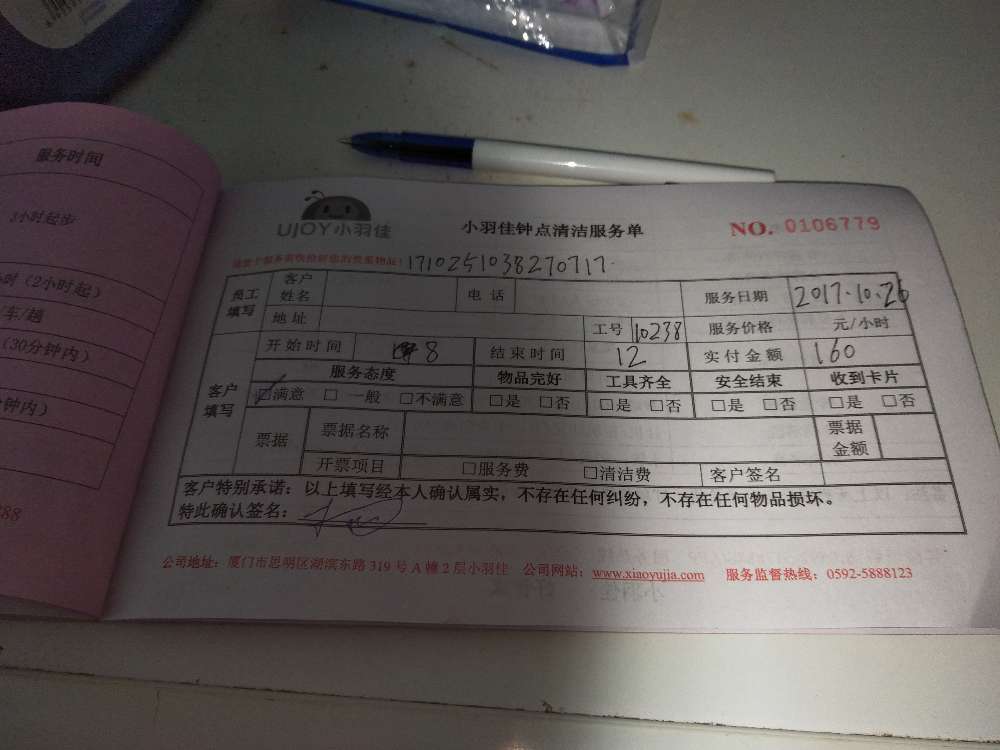 服务时间
3小时起步
时（2小时起）
/车/趟
（30分钟内）
分钟内）
288
UJOY小羽佳
小羽佳钟点清洁服务单
NO. 0106779
1710251038270717
员工填写
客户姓名
电 话
服务日期
2017.10.26
地 址
工号
10238
服务价格
元/小时
开 始 时 间
8
结 束 时 间
12
实 付 金 额
160
客户填写
服务态度
物品完好
工具齐全
安全结束
收到卡片
☑满意 □ 一般 □不满意
□是 □否
□是 □否
□是 □否
□是 □否
票据
票据名称
票据金额
开票项目
□服务费
□清洁费
客户签名
客户特别承诺：以上填写经本人确认属实，不存在任何纠纷，不存在任何物品损坏。
特此确认签名：
公司地址：厦门市思明区湖滨东路 319 号 A 幢 2 层小羽佳 公司网站：www.xiaoyujia.com 服务监督热线：0592-5888123